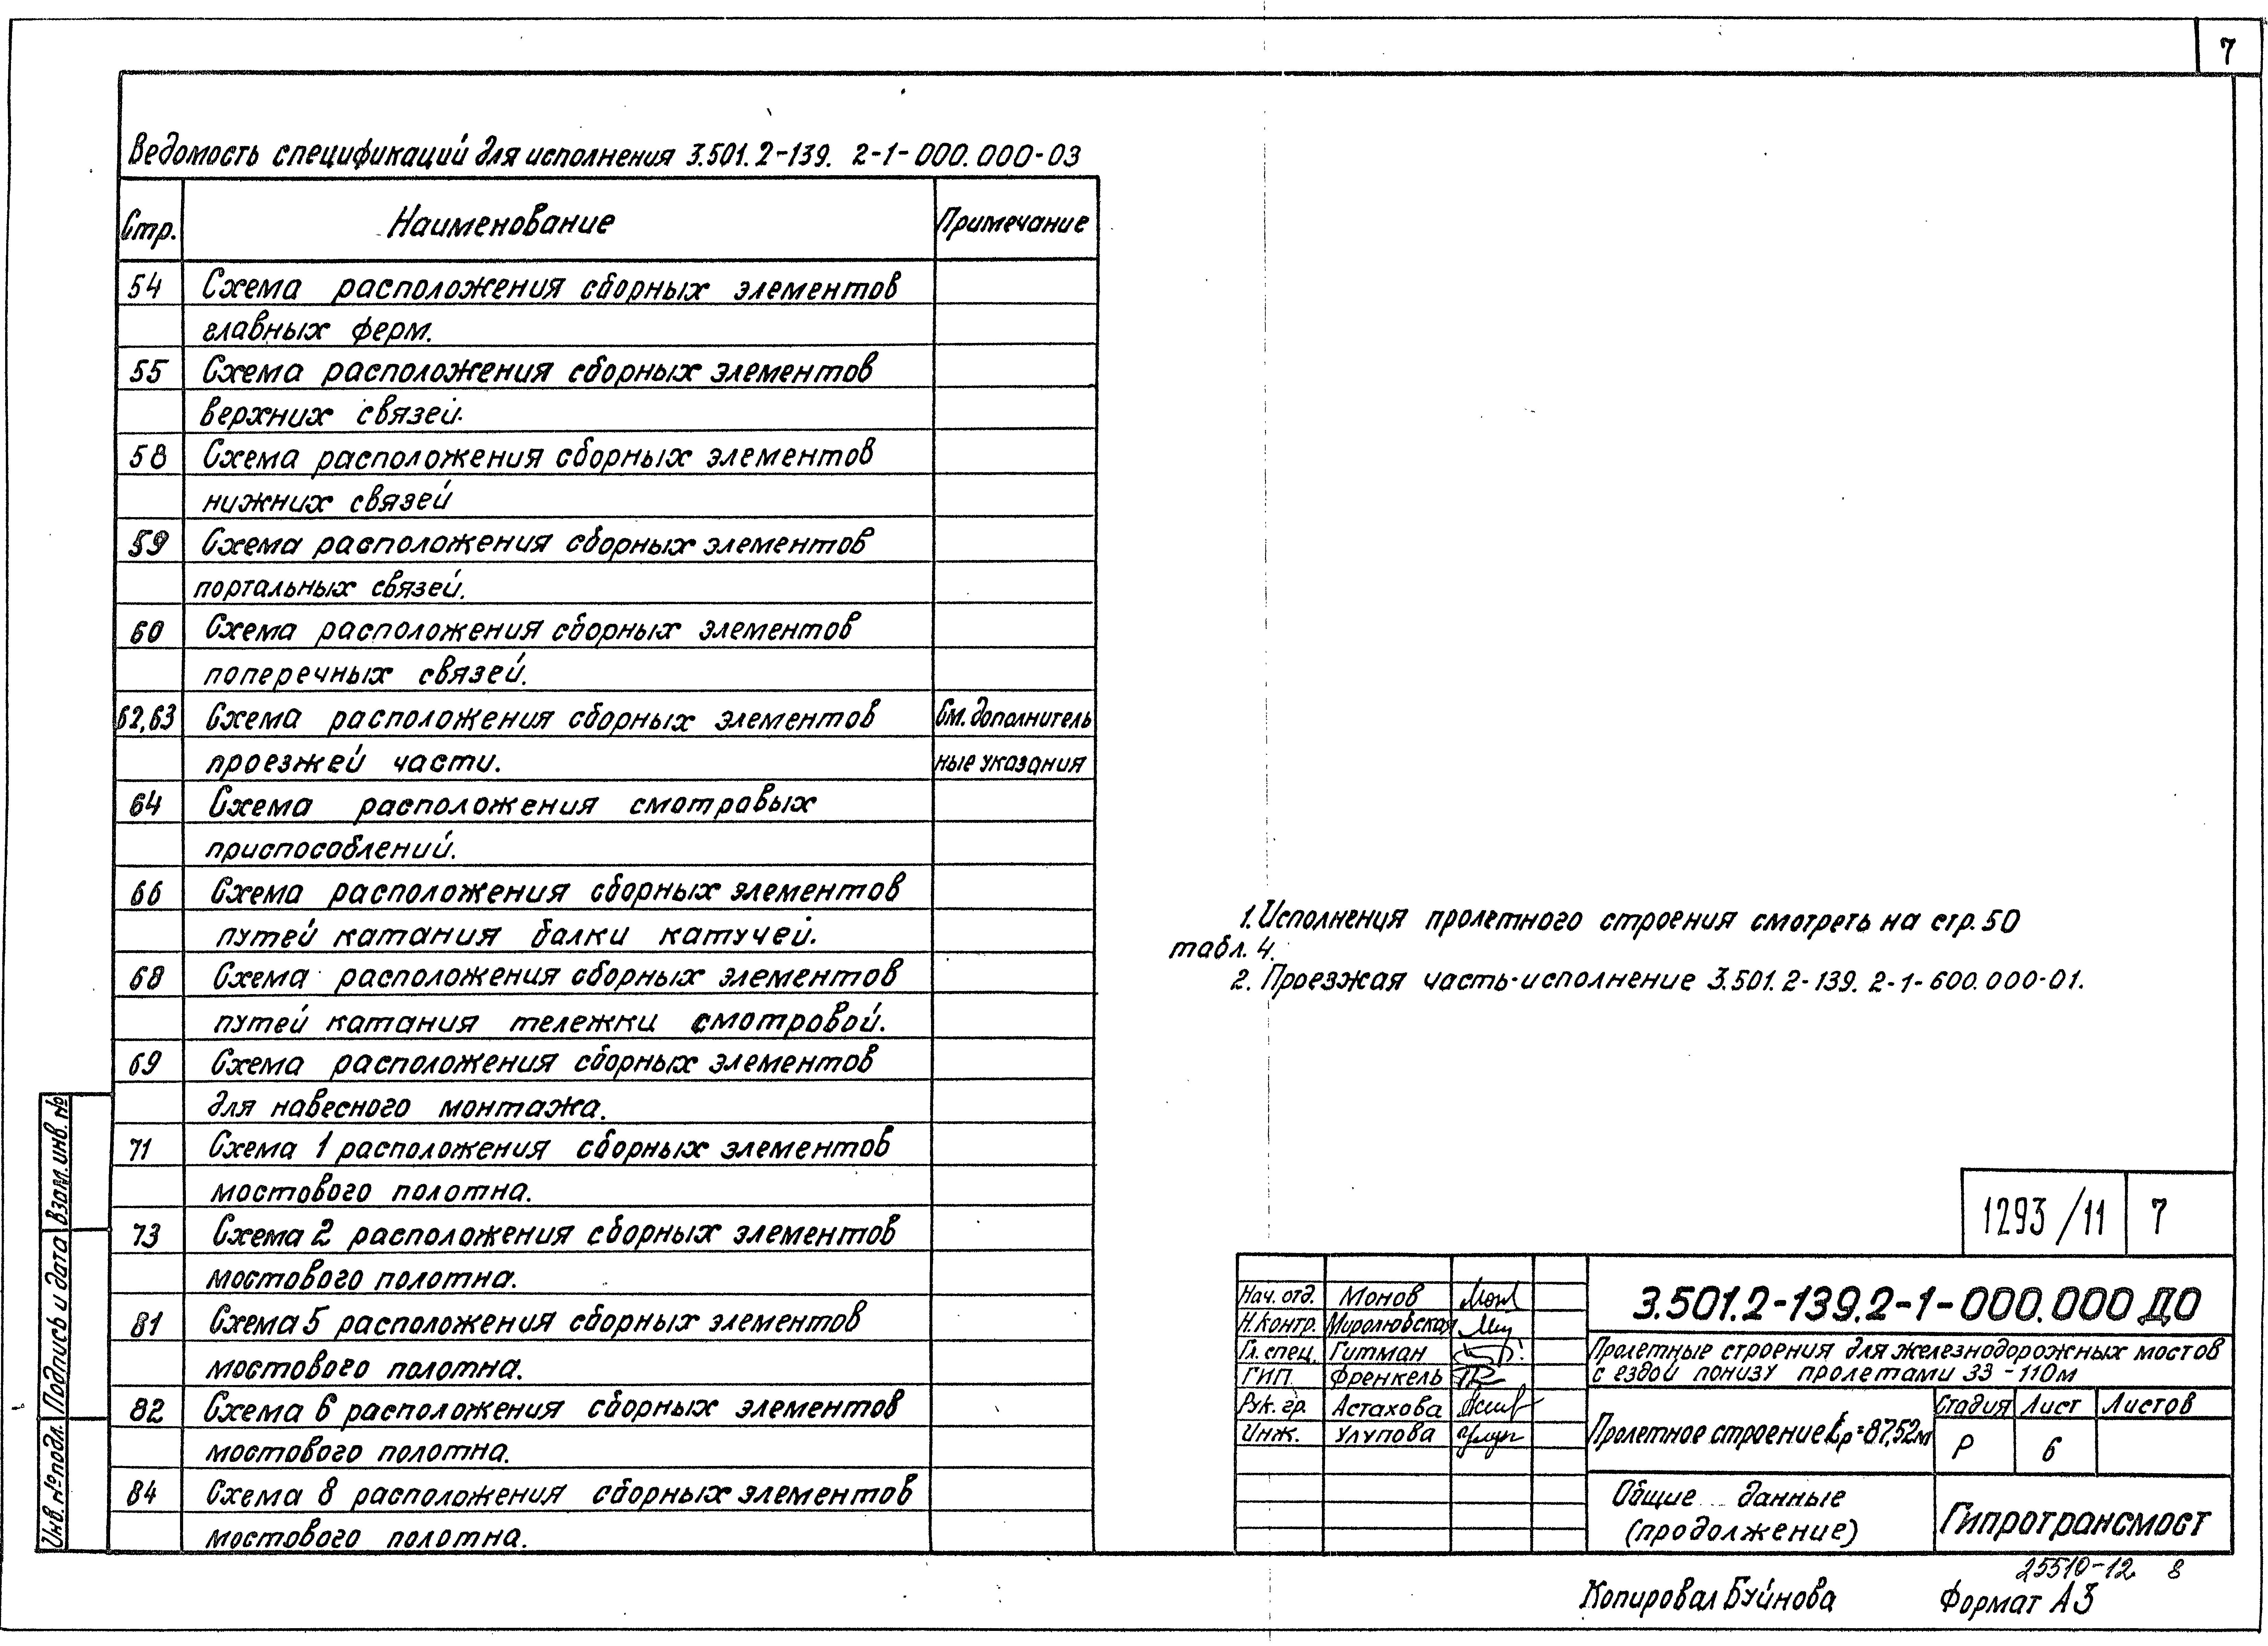 7
Ведомость спецификаций для исполнения 3.501.2-139. 2-1-000.000-03
Стр. Наименование Примечание
54 Схема расположения сборных элементов
главных ферм.
55 Схема расположения сборных элементов
верхних связей.
58 Схема расположения сборных элементов
нижних связей
59 Схема расположения сборных элементов
портальных связей.
60 Схема расположения сборных элементов
поперечных связей.
62,63 Схема расположения сборных элементов См. дополнитель
проезжей части. ные указания
64 Схема расположения смотровых
приспособлений.
66 Схема расположения сборных элементов
путей катания балки катучей.
68 Схема расположения сборных элементов
путей катания тележки смотровой.
69 Схема расположения сборных элементов
для навесного монтажа.
71 Схема 1 расположения сборных элементов
мостового полотна.
73 Схема 2 расположения сборных элементов
мостового полотна.
81 Схема 5 расположения сборных элементов
мостового полотна.
82 Схема 6 расположения сборных элементов
мостового полотна.
84 Схема 8 расположения сборных элементов
мостового полотна.
1. Исполнения пролетного строения смотреть на стр. 50
табл. 4.
2. Проезжая часть-исполнение 3.501.2-139. 2-1-600.000-01.
Инв. № подл. Подпись и дата Взам. инв. №
1293/11 7
3.501.2-139.2-1-000.000 ДО
Нач. отд. Монов
Н. контр. Миролювская
Гл. спец. Гитман
ГИП Френкель
Рук. гр. Астахова
Инж. Улупова
Пролетные строения для железнодорожных мостов
с ездой понизу пролетами 33-110м
Пролетное строение Lр=87,52м
Стадия Лист Листов
Р 6
Общие данные
(продолжение)
Гипротрансмост
25510-12 8
Копировал Буйнова Формат А3